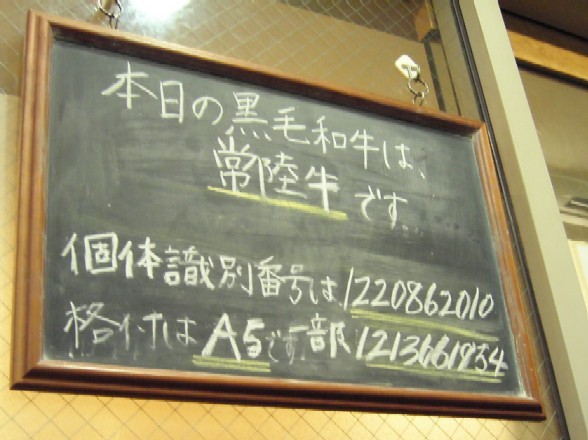 本日の黒毛和牛は、
常陸牛です。
個体識別番号は1220862010
格付はA5です一部1213661934